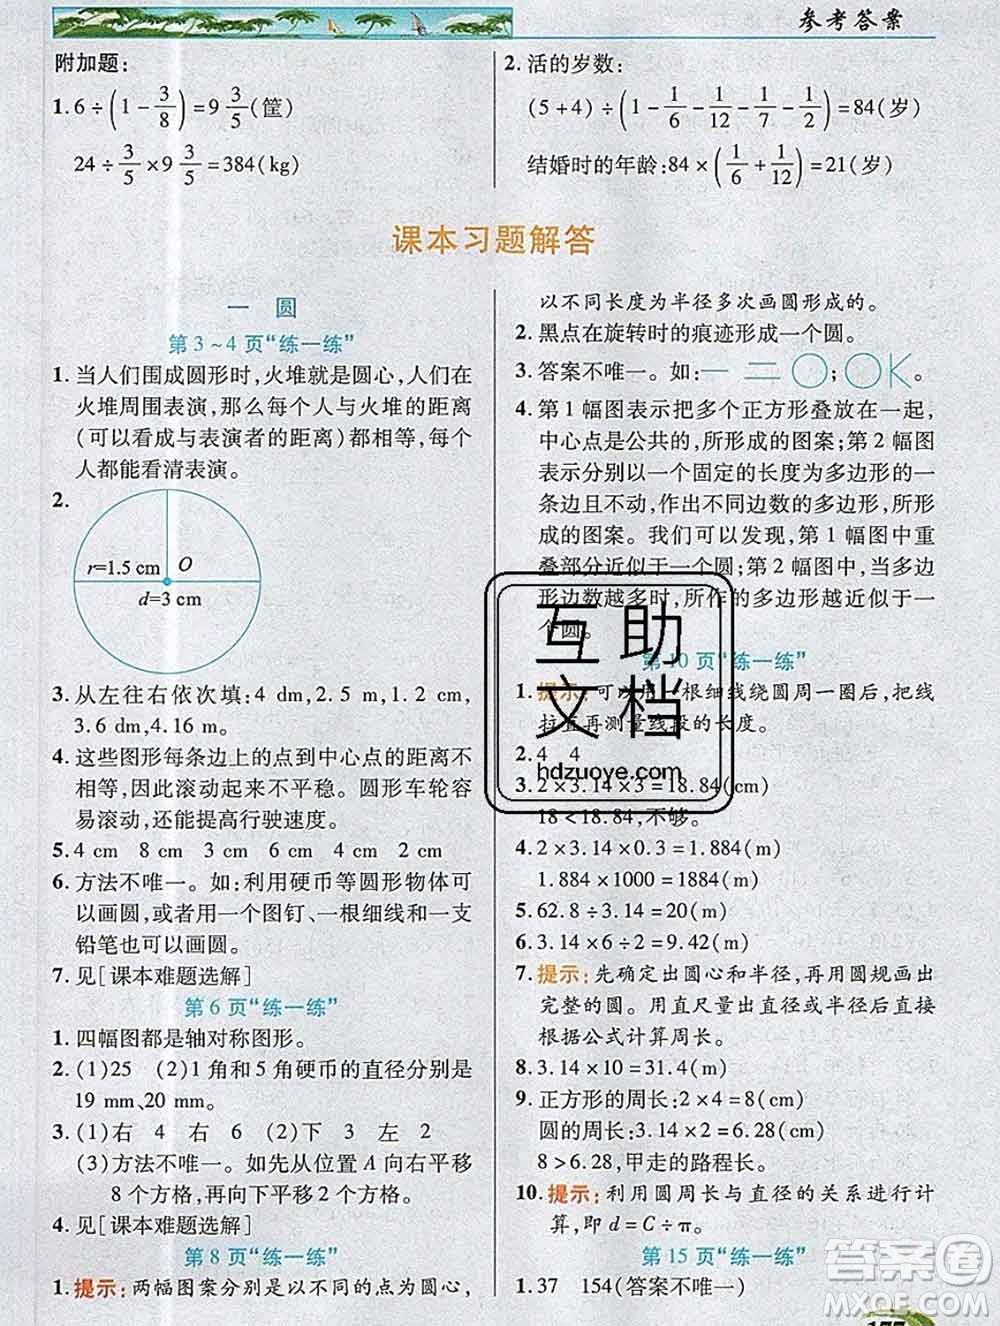 参考答案
附加题:
1. 6÷(1-3/8)=9 3/5(筐)
24÷3/5×9 3/5=384(kg)
2. 活的岁数:
(5+4)÷(1-1/6-1/12-1/7-1/2)=84(岁)
结婚时的年龄:84×(1/6+1/12)=21(岁)
课本习题解答
一 圆
第3~4页“练一练”
1. 当人们围成圆形时,火堆就是圆心,人们在
火堆周围表演,那么每个人与火堆的距离
(可以看成与表演者的距离)都相等,每个
人都能看清表演。
2.
r=1.5 cm O
d=3 cm
3. 从左往右依次填:4 dm,1.4 m,6 cm,
3.6 dm,4.16 m。
4. 这些图形每条边上的点到中心点的距离不
相等,因此滚动起来不平稳。圆形车轮容
易滚动,还能提高行驶速度。
5. 4 cm 8 cm 3 cm 4 cm 2 cm
6. 方法不唯一。如:利用硬币等圆形物体可
以画圆,用一个图钉、一根细线和一支
铅笔也可以画圆。
7. 见[课本难题选解]
第6页“练一练”
1. 四幅图都是轴对称图形。
2. (1)25 (2)1角和5角硬币的直径分别是
19 mm、20 mm。
3. (1)右 4 右 6 (2)下 3 左 2
(3)方法不唯一。如先从位置A向右平移
8个方格,再向下平移2个方格。
4. 见[课本难题选解]
第8页“练一练”
1. 提示:两幅图案分别是以不同的点为圆心,
以不同长度为半径多次画圆形成的。
2. 黑点在旋转时的痕迹形成一个圆。
3. 答案不唯一。如:一 二〇;〇K。
4. 第1幅图表示把多个正方形叠放在一起,
中心点是公共的,所形成的图案;第2幅图
表示分别以一个固定的长度为多边形的一
条边且不动,作出不同边数的多边形,所形
成的图案。我们可以发现,第1幅图中重
叠部分近似于一个圆;第2幅图中,当多边
形边数越多时,所作的多边形越近似于一
个圆。
第10页“练一练”
1. 提示:可以用一根细线绕圆周一圈后,把线
拉直再测量线段的长度。
2. 4 4
3. 2×3.14×3=18.84(cm)
18<18.84,不够。
4. 2×3.14×0.3=1.884(m)
1.884×1000=1884(m)
5. 62.8÷3.14=20(m)
6. 3.14×6÷2=9.42(m)
7. 提示:先确定出圆心和半径,再用圆规画出
完整的圆。用直尺量出直径或半径后直接
根据公式计算周长。
8. 3.14×10=31.4(cm)
9. 正方形的周长:2×4=8(cm)
圆的周长:3.14×2=6.28(cm)
8>6.28,甲走的路程长。
10. 提示:利用圆周长与直径的关系进行计
算,即d=C÷π。
第15页“练一练”
1. 37 154(答案不唯一)
互助
文档
hdzuoye.com
答案圈
MXQE.COM
177